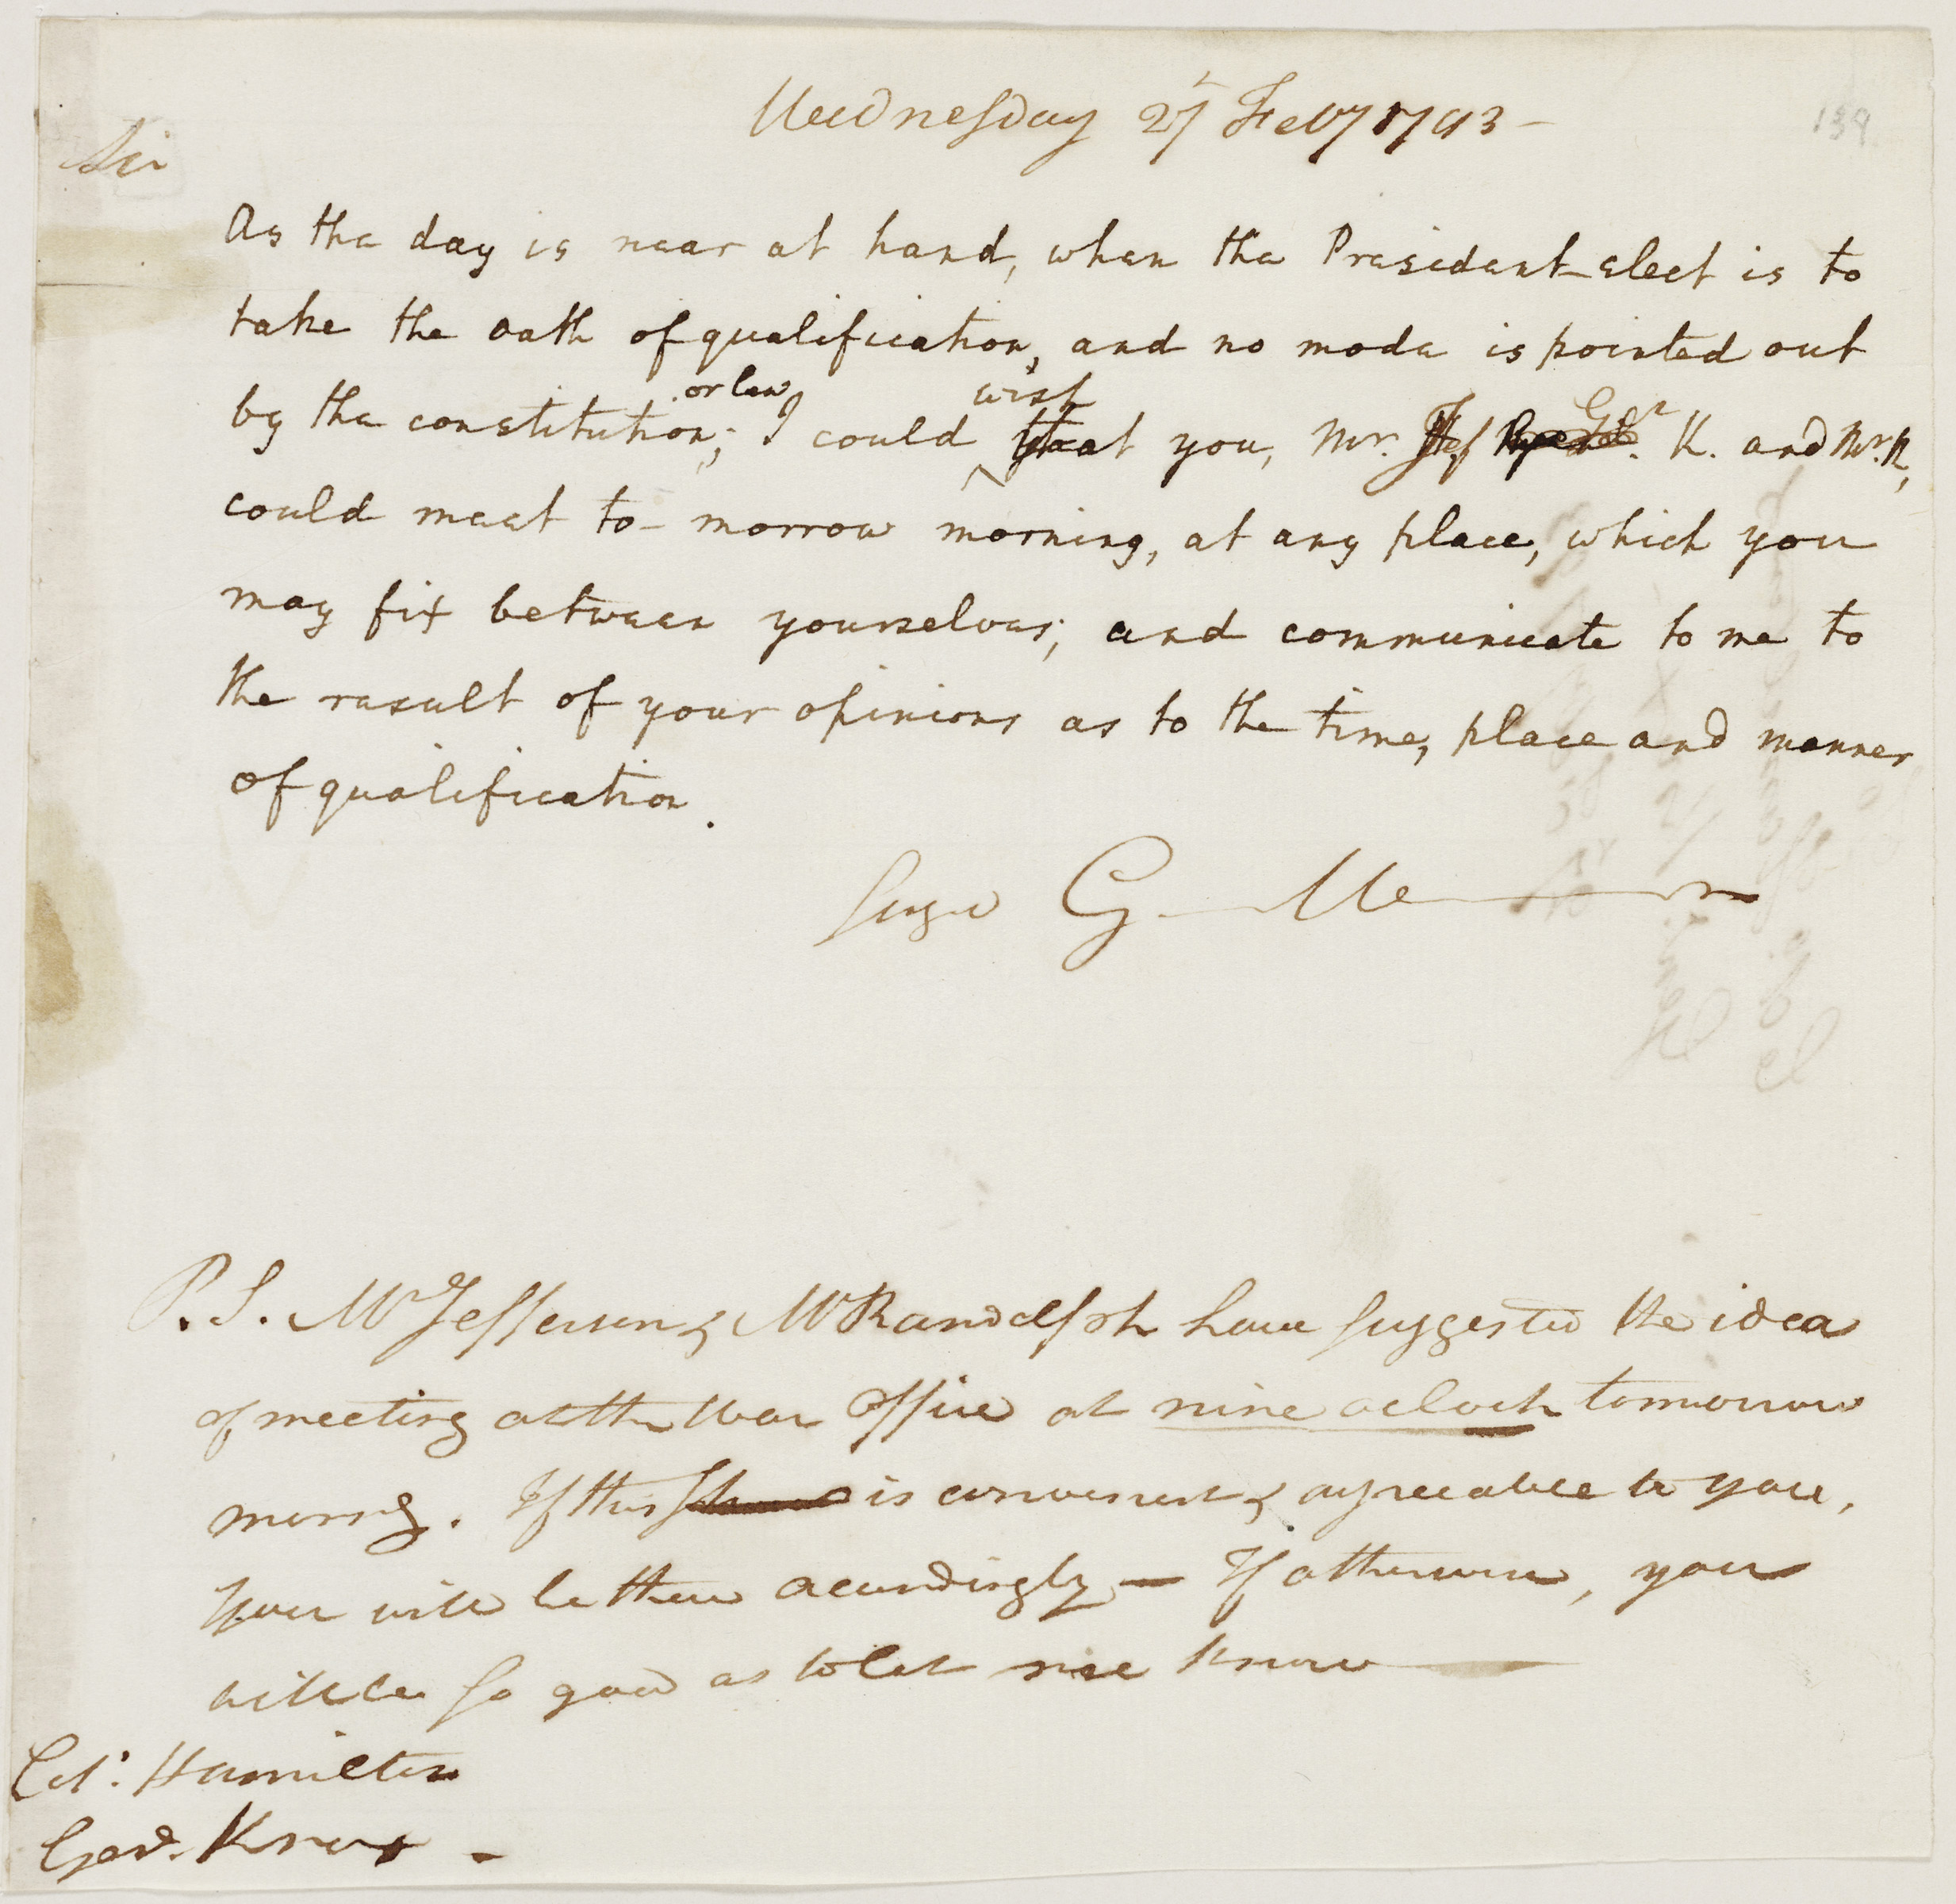 Wednesday 27 Feby 1793 –
139
Sir
As the day is near at hand, when the President-elect is to
take the oath of qualification, and no mode is pointed out
or law wish
by the constitution; I could that you, Mr. Jef Genl. K. and Mr. R,
could meet to-morrow morning, at any place, which you
may fix between yourselves; and communicate to me to
the result of your opinions as to the time, place and manner
of qualification.
Signed G—— W——n
P.S. Mr Jefferson & Mr Randolph have suggested the idea
of meeting at the War Office at nine oclock tomorrow
morng. If this is convenient & agreeable to you,
you will be there accordingly — If otherwise, you
will be so good as to let me know
Colo. Hamilton
Genl. Knox –